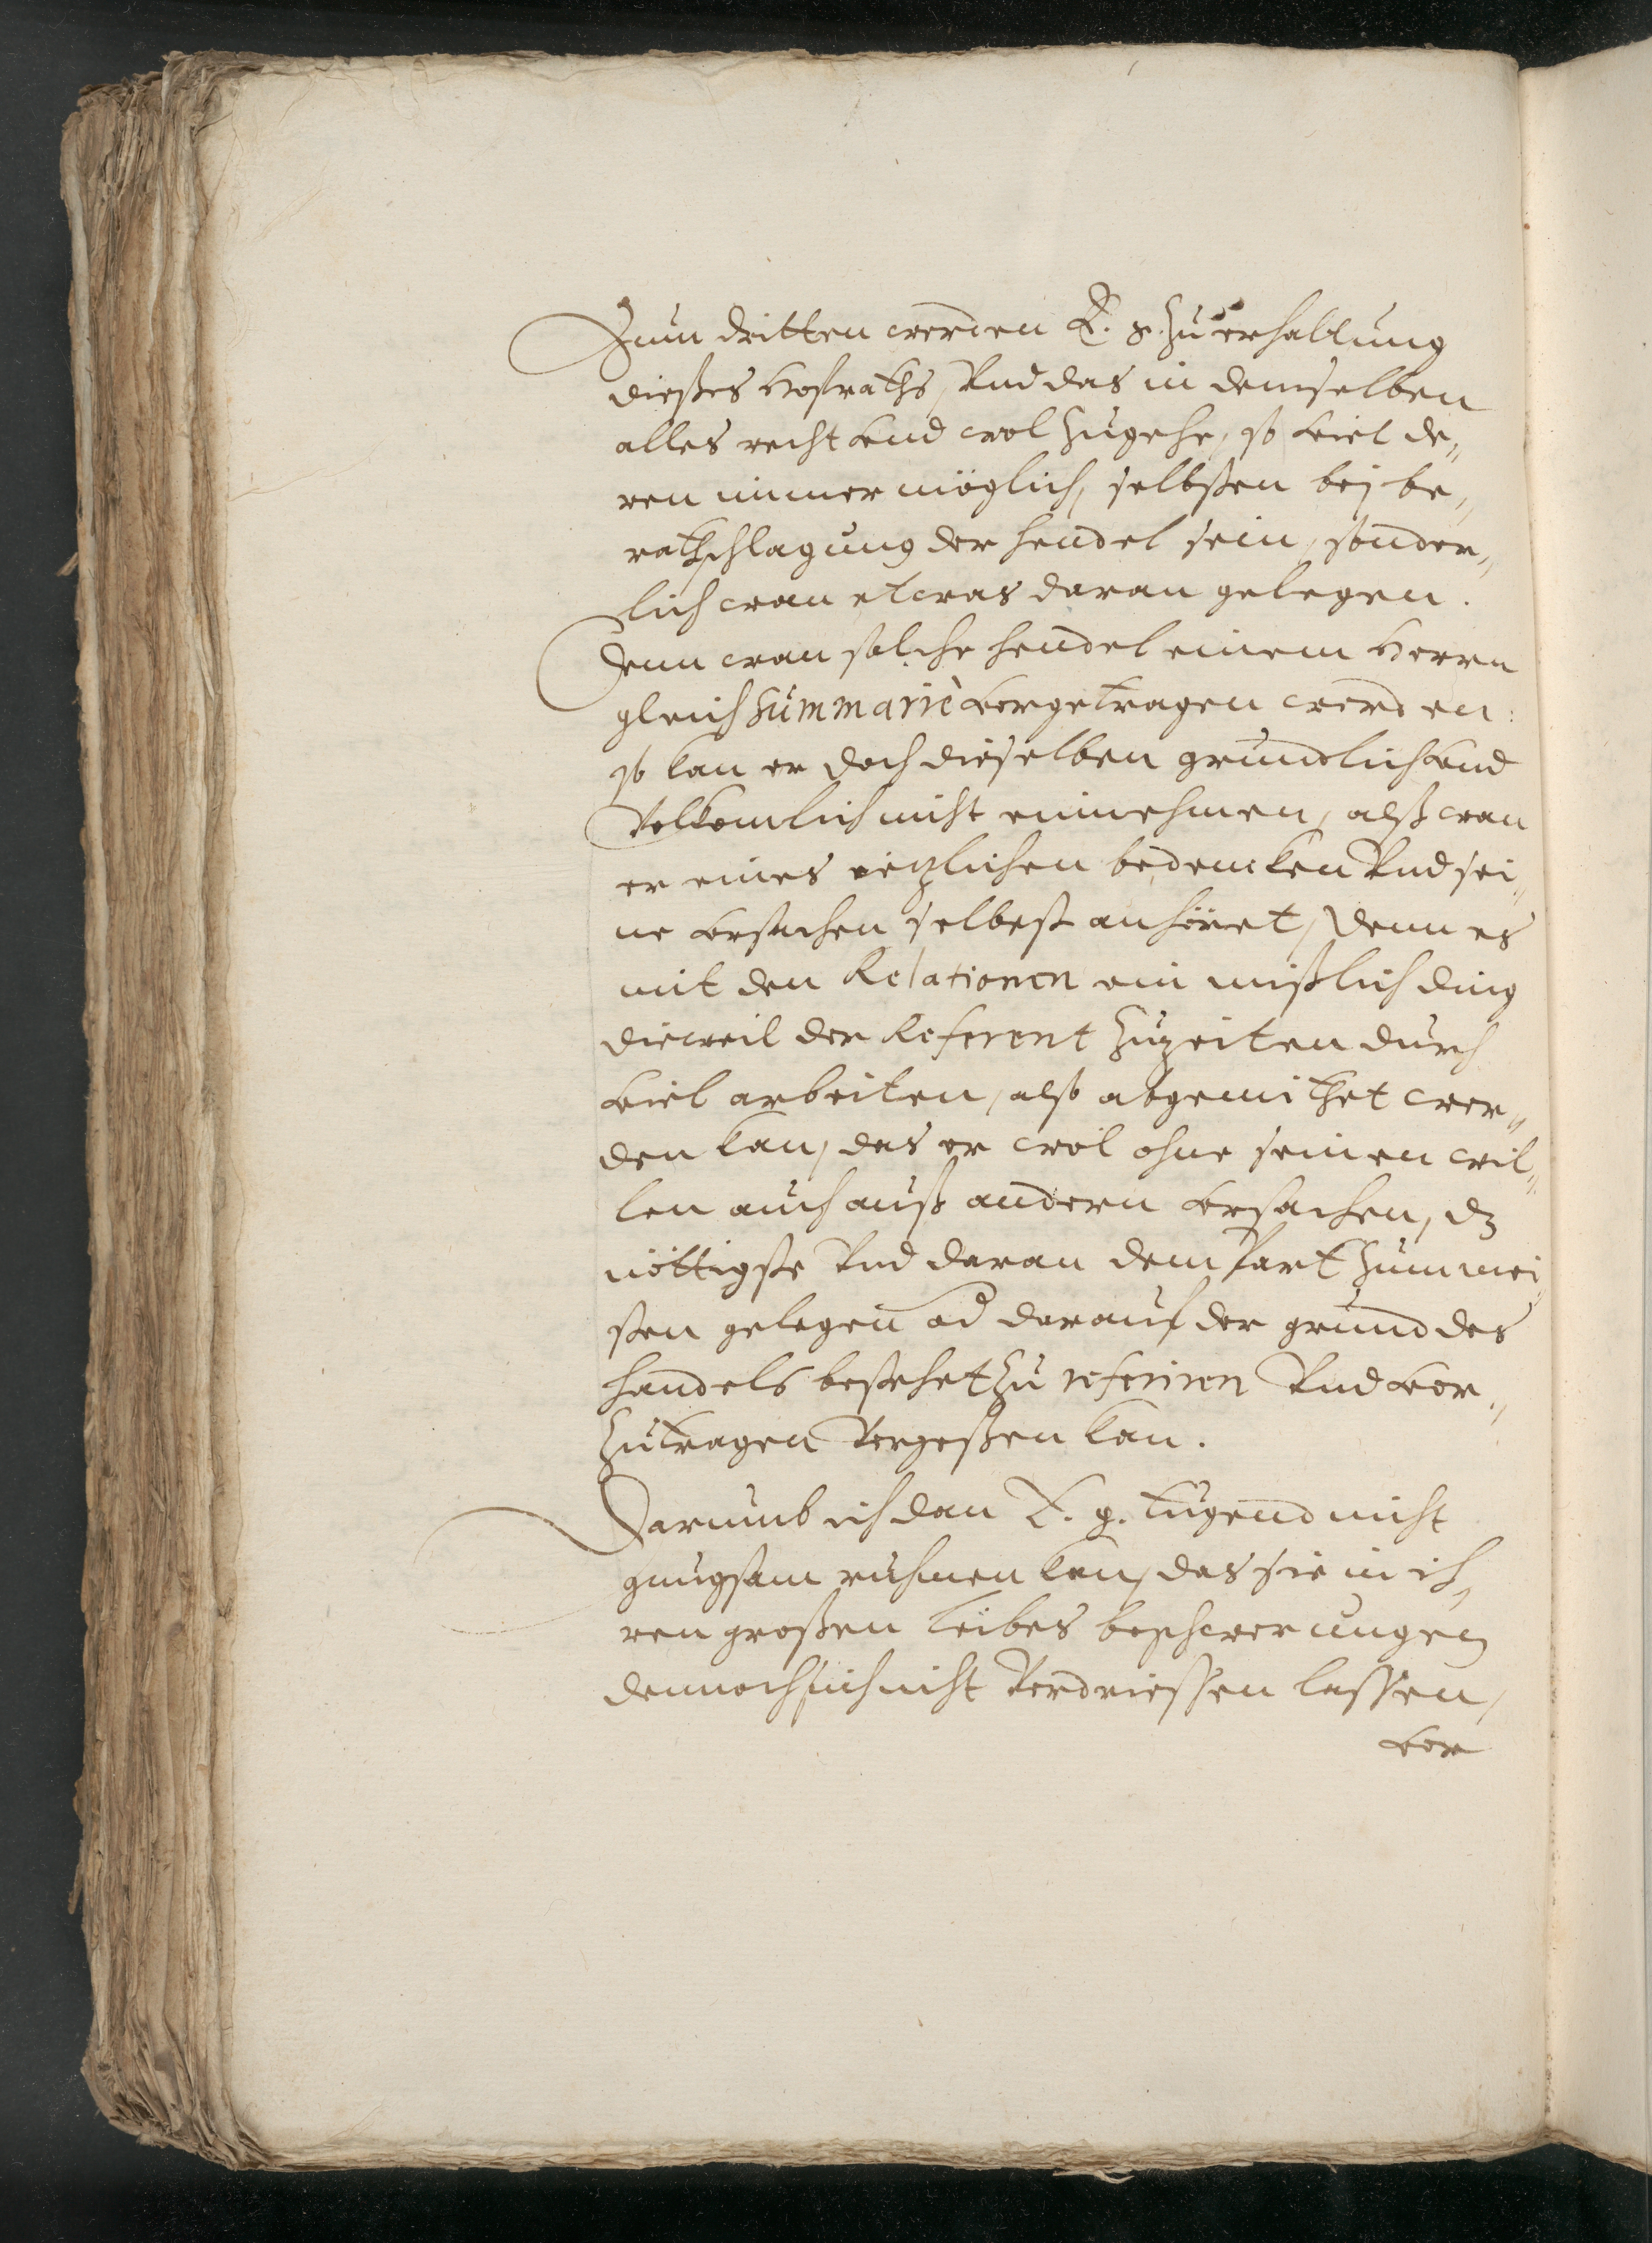 Zum dritten werden E. g. zu erhaltung
dießes Hofraths, Vnd das in demselben
alles recht vnd wol zugehe, so viel de„
ren immer möglich, selbsten bej be„
rathschlagung der hendel sein, sonder„
lich wan etwas daran gelegen.
Denn wan solche hendel einem Herrn
gleich summariè vorgetragen werden:
so kan er doch dieselben grundlich vnd
Volkomlich nicht einnehmen, alß wan
er eines ietzlichen bedencken Vnd sei„
ne vrsachen selbest anhöret, denn es
mit den Relationen ein mißlich ding
dieweil der Referent zuzeiten durch
viel arbeiten, also abgemithet wer„
den kan, das er wol ohne seinen wil„
len auch auß andern vrsachen, dz
nöttigste Vnd daran dem Part zum mei„
sten gelegen od darauf der grund des
handels bestehet zu referiren Vnd vor„
zutragen Vergeßen kan.
Darumb ich dan E. g. tugend nicht
gnugsam ruhmen kan, das sie in ih„
ren großen leibes beschwerungen
dennoch sich nicht Verdriessen lassen,
vor